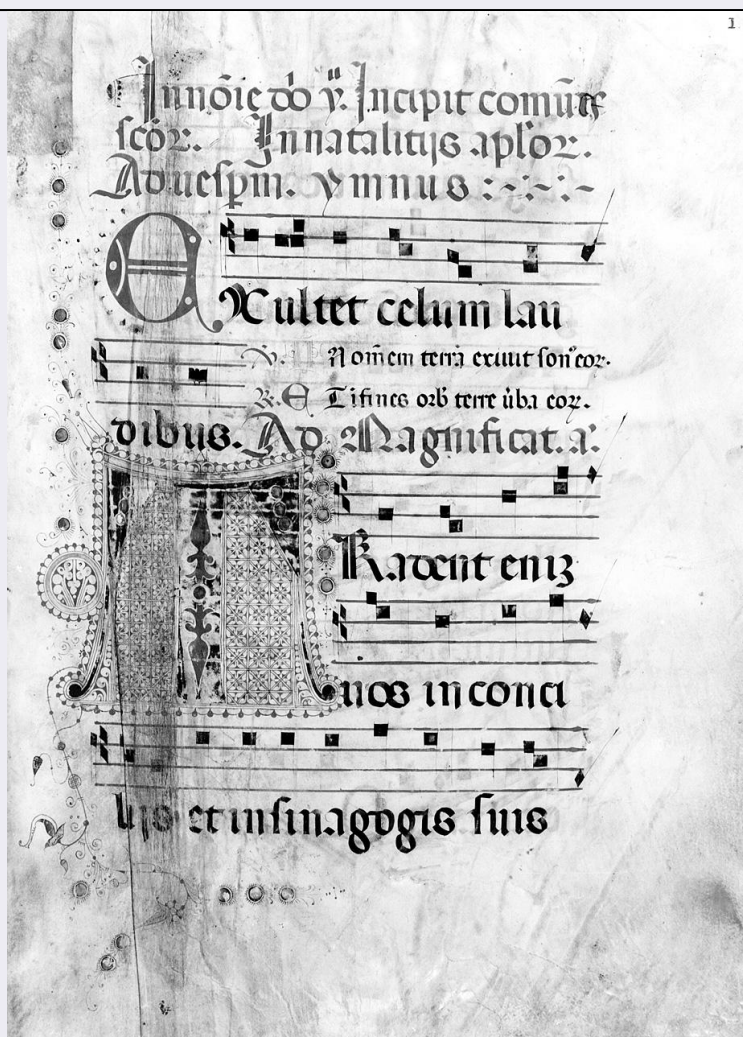 1
In nōie dō ỹ. Incipit comūe
scōꝝ. In natalitijs apl'oꝝ.
Ad uesꝑm. ymnus :~:~:~
EXultet celum lau
V. N omēm terrā exiuit son' eoꝝ.
R. E T i fines orb' terre ũba eoꝝ.
dibus. Ad Magnificat. a.
TRadent eniȝ
uos in conci
lijs et in sinagogis suis